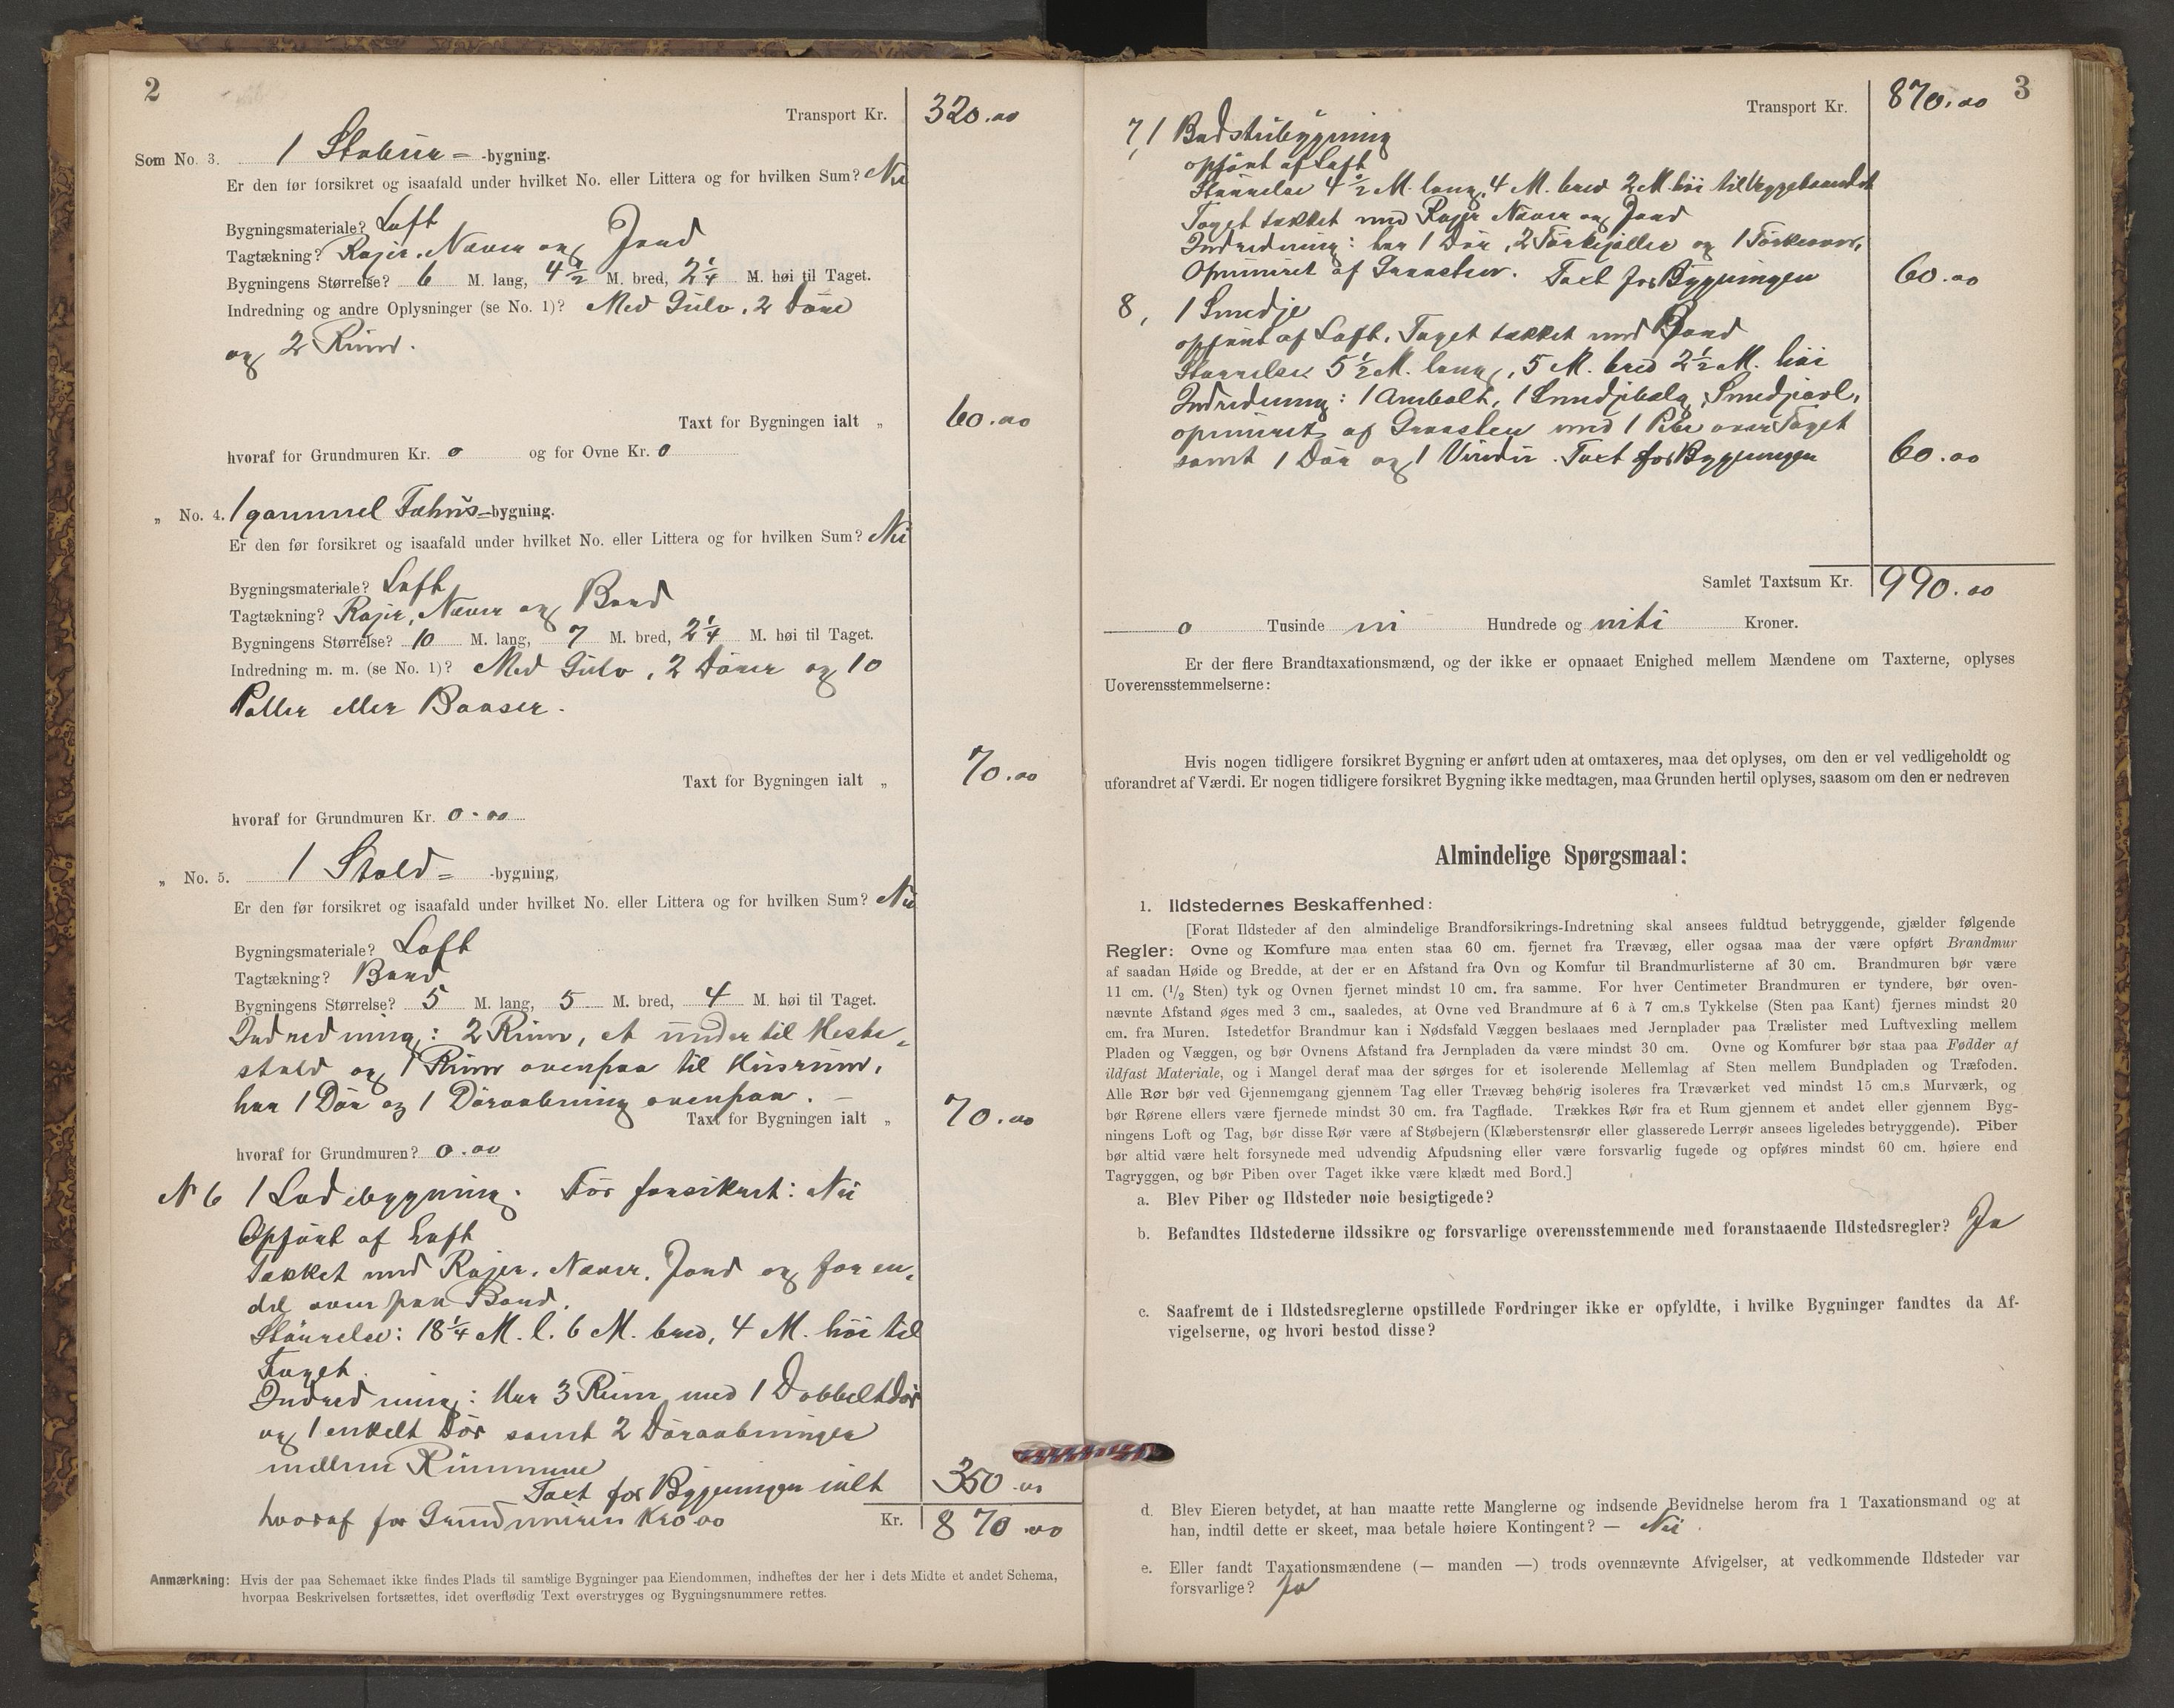 2
Transport Kr. 320.00
Som No. 3. 1 Stabur- -bygning.
Er den før forsikret og isaafald under hvilket No. eller Littera og for hvilken Sum? Nei
Bygningsmateriale? Laft
Tagtækning? Rajer, Næver og Jord
Bygningens Størrelse? 6 M. lang, 4 1/2 M. bred, 2 1/4 M. høi til Taget.
Indredning og andre Oplysninger (se No. 1)? Med Gulv, 2 Döre
og 2 Rum.
Taxt for Bygningen ialt „ 60.00
hvoraf for Grundmuren Kr. 0 og for Ovne Kr. 0
„ No. 4. 1 gammel Fæhus-bygning.
Er den før forsikret og isaafald under hvilket No. eller Littera og for hvilken Sum? Nei
Bygningsmateriale? Laft
Tagtækning? Rajer, Næver og Bord
Bygningens Størrelse? 10 M. lang, 7 M. bred, 2 1/4 M. høi til Taget.
Indredning m. m. (se No. 1)? Med Gulv, 2 Dörer og 10
Paller eller Baaser.
Taxt for Bygningen ialt „ 70.00
hvoraf for Grundmuren Kr. 0.00
„ No. 5. 1 Stald- -bygning,
Er den før forsikret og isaafald under hvilket No. eller Littera og for hvilken Sum? Nei
Bygningsmateriale? Laft
Tagtækning? Bord
Bygningens Størrelse? 5 M. lang, 5 M. bred, 4 M. høi til Taget.
Indredning: 2 Rum, et under til Heste-
stald og 1 Rum ovenpaa til Husrum,
har 1 Dör og 1 Döraabning ovenpaa. -
Taxt for Bygningen ialt „ 70.00
hvoraf for Grundmuren? 0.00
N 6 1 Ladebygning. Før forsikret: Nei
Opfört af Laft
Tækket med Rajer, Næver, Jord og for en-
del ovenpaa Bord.
Störrelse: 18 1/4 M. l. 6 M. bred, 4 M. höi til
Taget.
Indredning: Har 3 Rum med 1 Dobbeltdör
og 1 enkelt Dör samt 2 Döraabninger
mellem Rummene
Taxt for Bygningen ialt 350.00
hvoraf for Grundmuren Kr 0.00 Kr. 870.00
Anmærkning: Hvis der paa Schemaet ikke findes Plads til samtlige Bygninger paa Eiendommen, indheftes der her i dets Midte et andet Schema,
hvorpaa Beskrivelsen fortsættes, idet overflødig Text overstryges og Bygningsnummere rettes.
3
Transport Kr. 870.00
7, 1 Badstubygning
opfört af Laft
Störrelse 4 1/2 M. lang, 4 M. bred 2 M. höi til
Taget tækket med Rajer Næver og Jord
Indredning: har 1 Dör, 2 Törkehjeller og 1 Törkeovn,
Opmuret af Graasten. Taxt for Bygningen 60.00
8, 1 Smedje
opfört af Laft, Taget tækket med Bord
Störrelse 5 1/2 M. lang, 5 M. bred 2 1/2 M. höi
Indredning: 1 Ambolt, 1 Smedjebelg, Smedjeavl,
opmuret af Graasten med 1 Pibe over Taget
samt 1 Dör og 1 Vindu. Taxt for Bygningen 60.00
Samlet Taxtsum Kr. 990.00
0 Tusinde ni Hundrede og niti Kroner.
Er der flere Brandtaxationsmænd, og der ikke er opnaaet Enighed mellem Mændene om Taxterne, oplyses
Uoverensstemmelserne:
Hvis nogen tidligere forsikret Bygning er anført uden at omtaxeres, maa det oplyses, om den er vel vedligeholdt og
uforandret af Værdi. Er nogen tidligere forsikret Bygning ikke medtagen, maa Grunden hertil oplyses, saasom om den er nedreven
Almindelige Spørgsmaal:
1. Ildstedernes Beskaffenhed:
[Forat Ildsteder af den almindelige Brandforsikrings-Indretning skal ansees fuldtud betryggende, gjælder følgende
Regler: Ovne og Komfure maa enten staa 60 cm. fjernet fra Trævæg, eller ogsaa maa der være opført Brandmur
af saadan Høide og Bredde, at der er en Afstand fra Ovn og Komfur til Brandmurlisterne af 30 cm. Brandmuren bør være
11 cm. (1/2 Sten) tyk og Ovnen fjernet mindst 10 cm. fra samme. For hver Centimeter Brandmuren er tyndere, bør oven-
nævnte Afstand øges med 3 cm., saaledes, at Ovne ved Brandmure af 6 à 7 cm.s Tykkelse (Sten paa Kant) fjernes mindst 20
cm. fra Muren. Istedetfor Brandmur kan i Nødsfald Væggen beslaaes med Jernplader paa Trælister med Luftvexling mellem
Pladen og Væggen, og bør Ovnens Afstand fra Jernpladen da være mindst 30 cm. Ovne og Komfurer bør staa paa Fødder af
ildfast Materiale, og i Mangel deraf maa der sørges for et isolerende Mellemlag af Sten mellem Bundpladen og Træfoden.
Alle Rør bør ved Gjennemgang gjennem Tag eller Trævæg behørig isoleres fra Træværket ved mindst 15 cm.s Murværk, og
bør Rørene ellers være fjernede mindst 30 cm. fra Tagflade. Trækkes Rør fra et Rum gjennem et andet eller gjennem Byg-
ningens Loft og Tag, bør disse Rør være af Støbejern (Klæberstensrør eller glasserede Lerrør ansees ligeledes betryggende). Piber
bør altid være helt forsynede med udvendig Afpudsning eller være forsvarlig fugede og opføres mindst 60 cm. høiere end
Tagryggen, og bør Piben over Taget ikke være klædt med Bord.]
a. Blev Piber og Ildsteder nøie besigtigede?
b. Befandtes Ildstederne ildssikre og forsvarlige overensstemmende med foranstaaende Ildstedsregler? Ja
c. Saafremt de i Ildstedsreglerne opstillede Fordringer ikke er opfyldte, i hvilke Bygninger fandtes da Af-
vigelserne, og hvori bestod disse?
d. Blev Eieren betydet, at han maatte rette Manglerne og indsende Bevidnelse herom fra 1 Taxationsmand og at
han, indtil dette er skeet, maa betale høiere Kontingent? — Nei
e. Eller fandt Taxationsmændene (— manden —) trods ovennævnte Afvigelser, at vedkommende Ildsteder var
forsvarlige? Ja